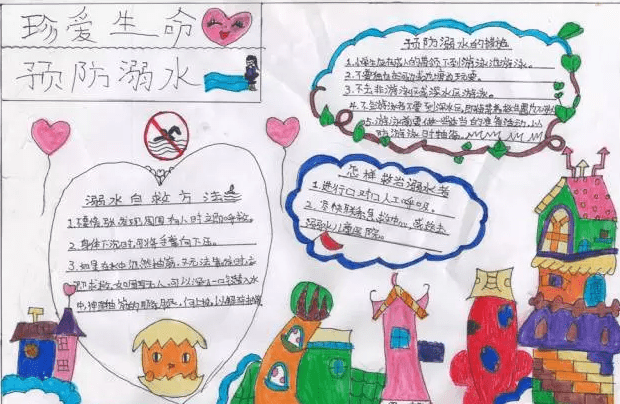 珍爱生命
预防溺水
预防溺水的措施
1.小学生应在成人的带领下到游泳池游泳。
2.不要独自在河边或池塘边玩耍。
3.不去非游泳区或深水区游泳。
4.不会游泳者不要到深水区
5.游泳前要做一些适当的准备活动,以
防游泳时抽筋。
溺水自救方法
1.不要慌张,发现周围有人时立即呼救。
2.身体下沉时,可将手掌向下压。
3.如果在水中突然抽筋,又无法靠岸时,立
即求救。如周围无人,可以深吸一口气潜入水
中,伸直抽筋的那条腿,
怎样救治溺水者
1.进行口对口人工呼吸。
2.尽快联系急救中心,或救去
溺水儿童医院。